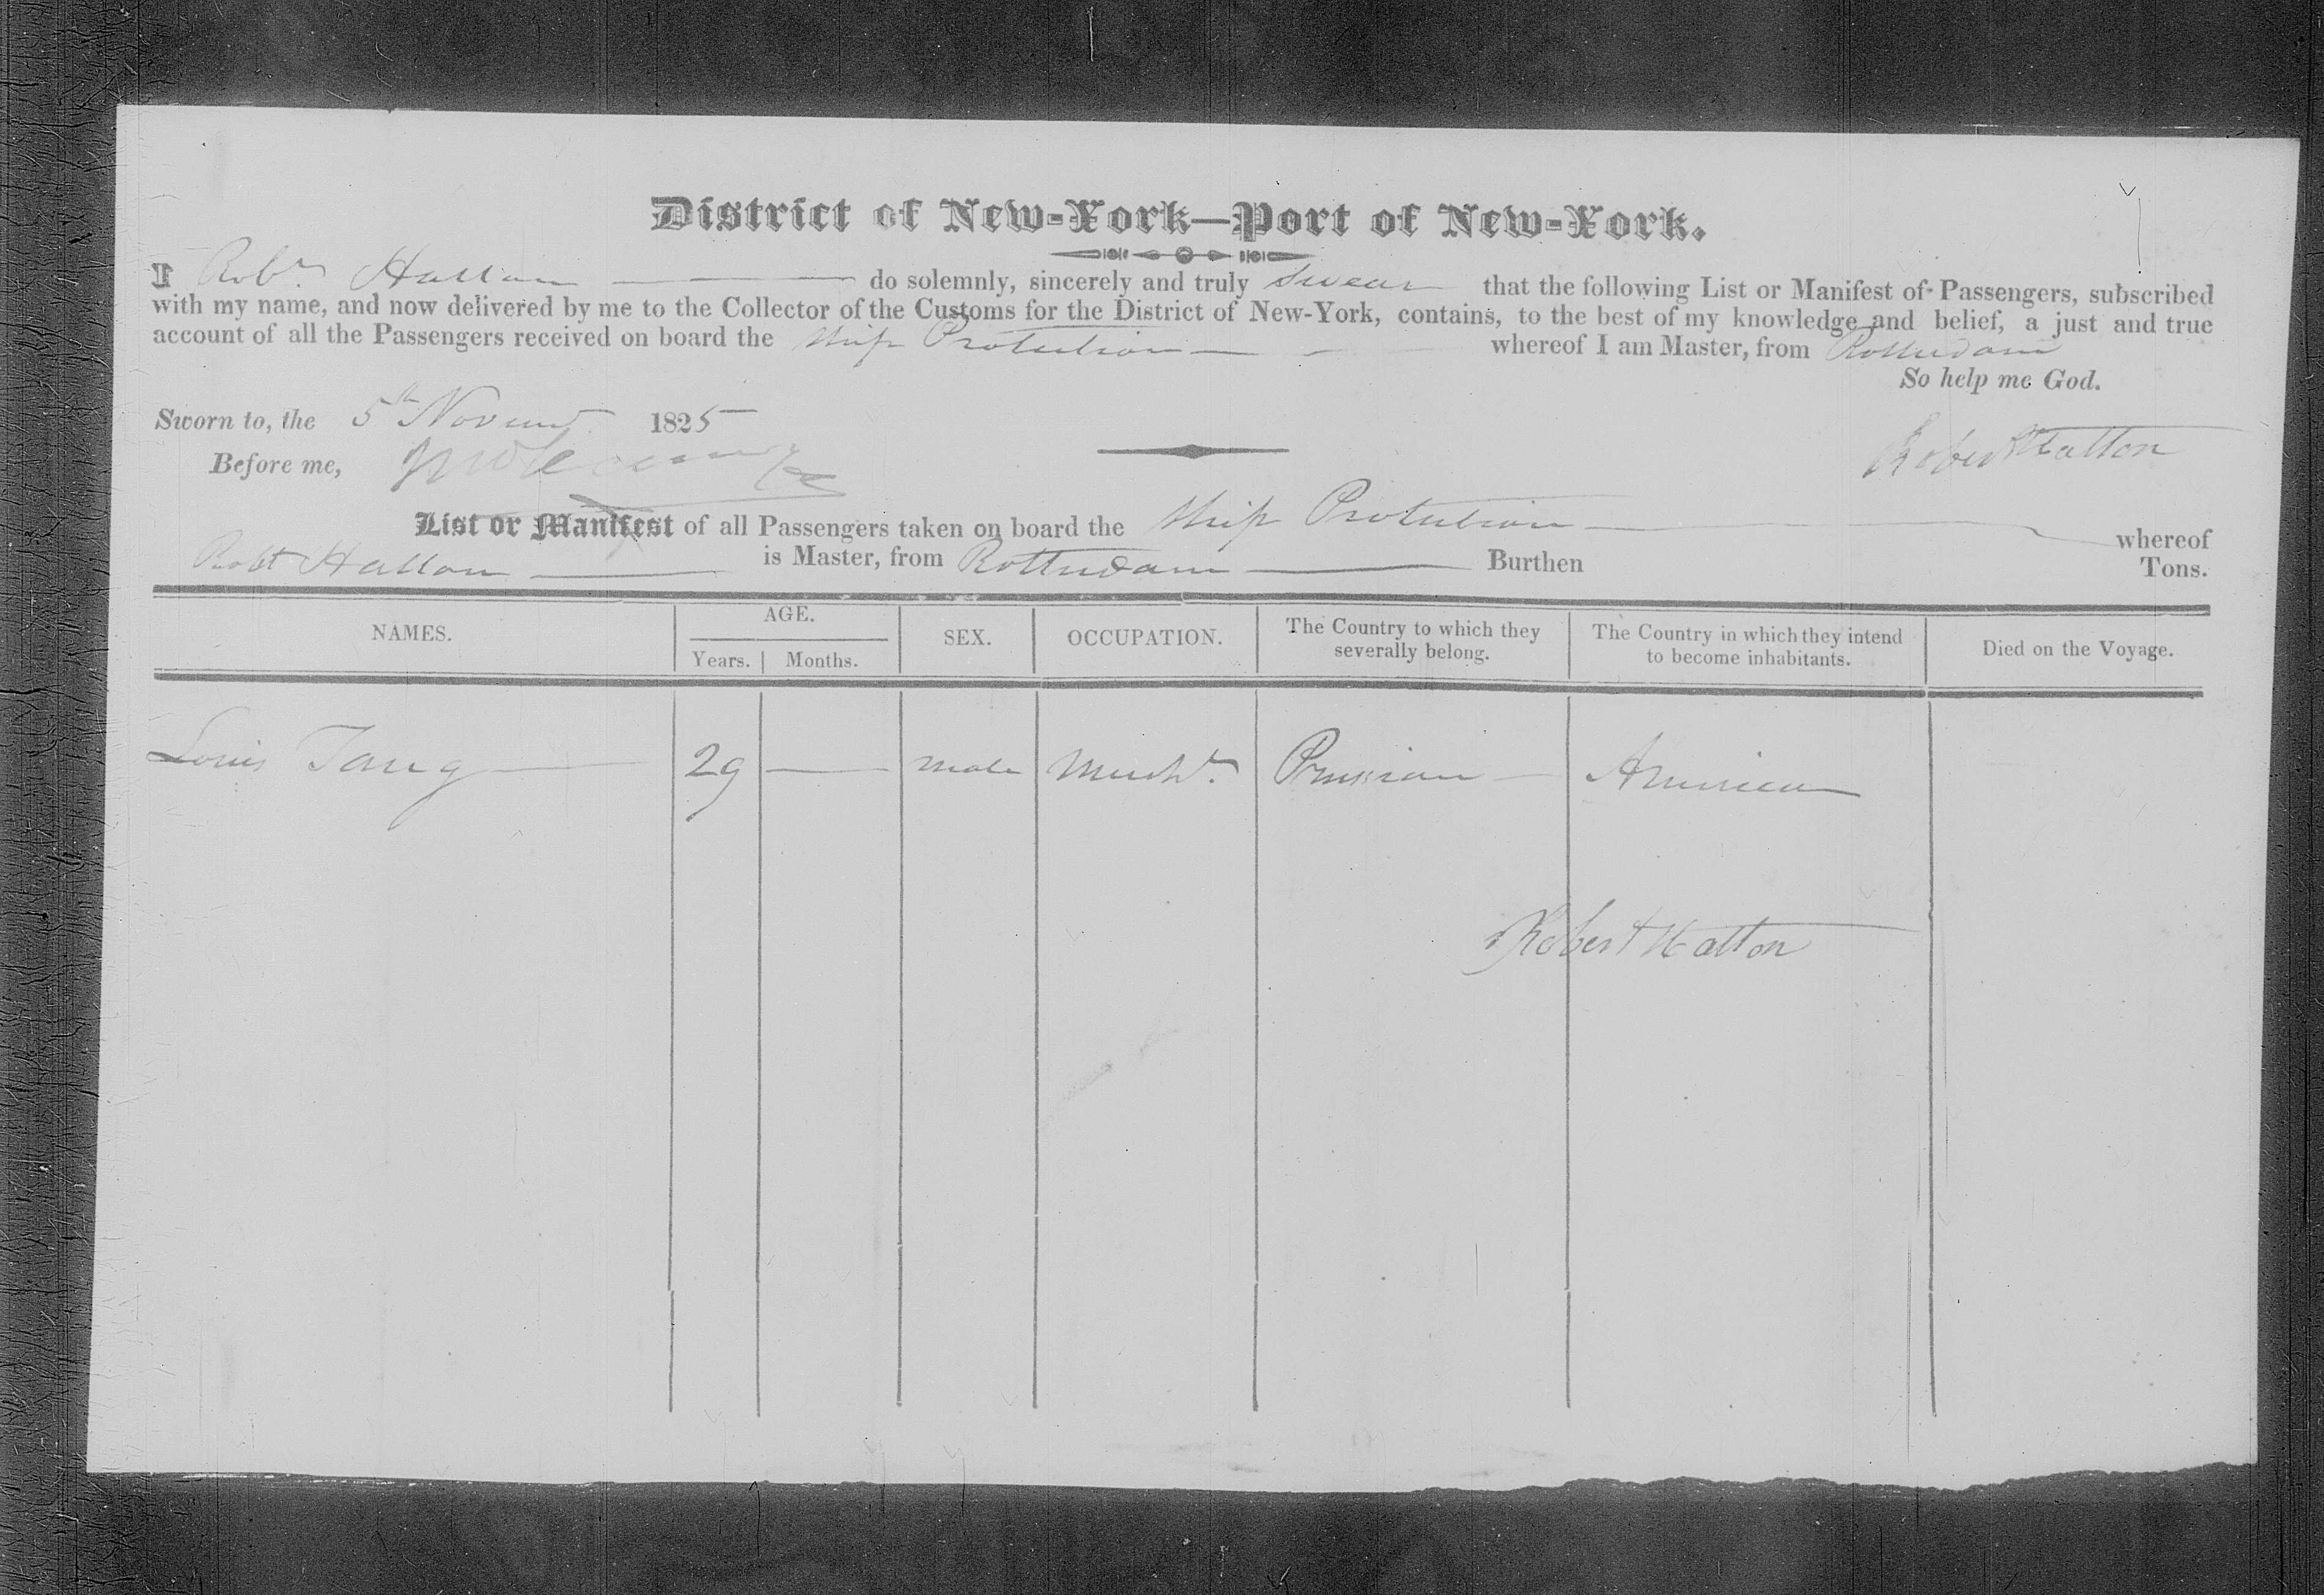 District of New-York—Port of New-York.
I Robt. Hatton do solemnly, sincerely and truly swear that the following List or Manifest of Passengers, subscribed
with my name, and now delivered by me to the Collector of the Customs for the District of New-York, contains, to the best of my knowledge and belief, a just and true
account of all the Passengers received on board the Ship Protection whereof I am Master, from Rotterdam
So help me God.
Sworn to, the 5th Novem 1825
Before me,
Robert Hatton
List or Manifest of all Passengers taken on board the Ship Protection whereof
Robt Hatton is Master, from Rotterdam Burthen Tons.
NAMES. AGE. Years. Months. SEX. OCCUPATION. The Country to which they severally belong. The Country in which they intend to become inhabitants. Died on the Voyage.
Louis Tang 29 — male Mercht. Prussian American
Robert Hatton